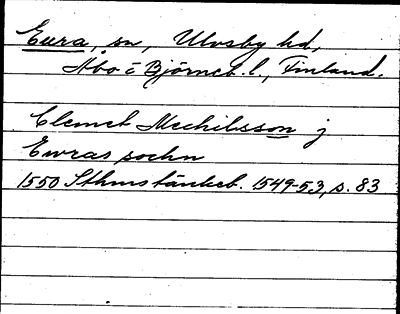 Eura, sn, Ulvsby hd,
Åbo o Björneb. l., Finland.
Clemet Mechilsson j
Ewras sochn
1550 Sthms tänkeb. 1549-53, s. 83